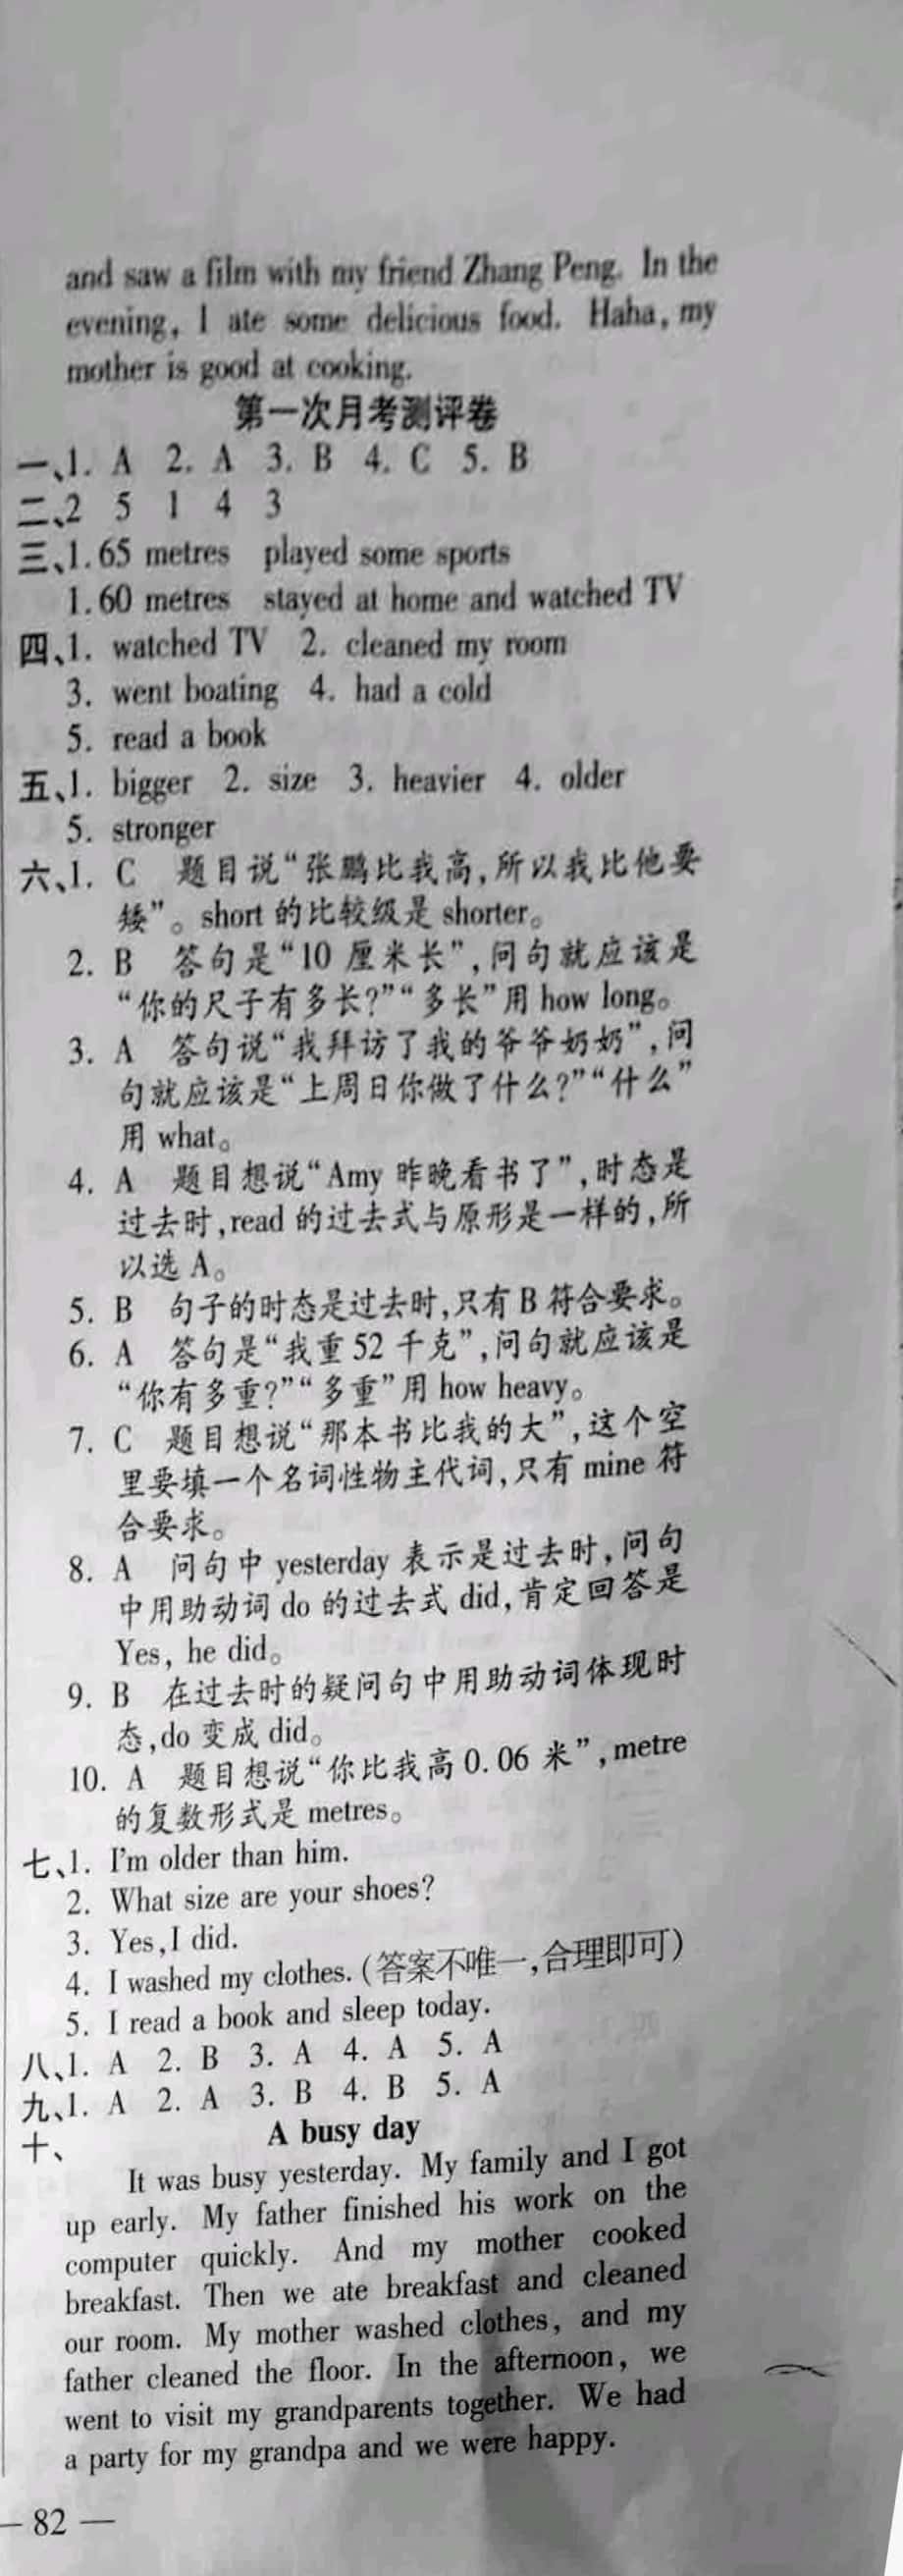 and saw a film with my friend Zhang Peng. In the
evening, I ate some delicious food. Haha, my
mother is good at cooking.
第一次月考测评卷
一、1. A 2. A 3. B 4. C 5. B
二、2 5 1 4 3
三、1.65 metres played some sports
1.60 metres stayed at home and watched TV
四、1. watched TV 2. cleaned my room
3. went boating 4. had a cold
5. read a book
五、1. bigger 2. size 3. heavier 4. older
5. stronger
六、1. C 题目说“张鹏比我高,所以我比他要
矮”。short 的比较级是 shorter。
2. B 答句是“10 厘米长”,问句就应该是
“你的尺子有多长?”“多长”用 how long。
3. A 答句说“我拜访了我的爷爷奶奶”,问
句就应该是“上周日你做了什么?”“什么”
用 what。
4. A 题目想说“Amy 昨晚看书了”,时态是
过去时,read 的过去式与原形是一样的,所
以选 A。
5. B 句子的时态是过去时,只有 B 符合要求。
6. A 答句是“我重 52 千克”,问句就应该是
“你有多重?”“多重”用 how heavy。
7. C 题目想说“那本书比我的大”,这个空
里要填一个名词性物主代词,只有 mine 符
合要求。
8. A 问句中 yesterday 表示是过去时,问句
中用助动词 do 的过去式 did,肯定回答是
Yes, he did。
9. B 在过去时的疑问句中用助动词体现时
态,do 变成 did。
10. A 题目想说“你比我高 0.06 米”,metre
的复数形式是 metres。
七、1. I'm older than him.
2. What size are your shoes?
3. Yes,I did.
4. I washed my clothes. (答案不唯一,合理即可)
5. I read a book and sleep today.
八、1. A 2. B 3. A 4. A 5. A
九、1. A 2. A 3. B 4. B 5. A
十、 A busy day
It was busy yesterday. My family and I got
up early. My father finished his work on the
computer quickly. And my mother cooked
breakfast. Then we ate breakfast and cleaned
our room. My mother washed clothes, and my
father cleaned the floor. In the afternoon, we
went to visit my grandparents together. We had
a party for my grandpa and we were happy.
— 82 —